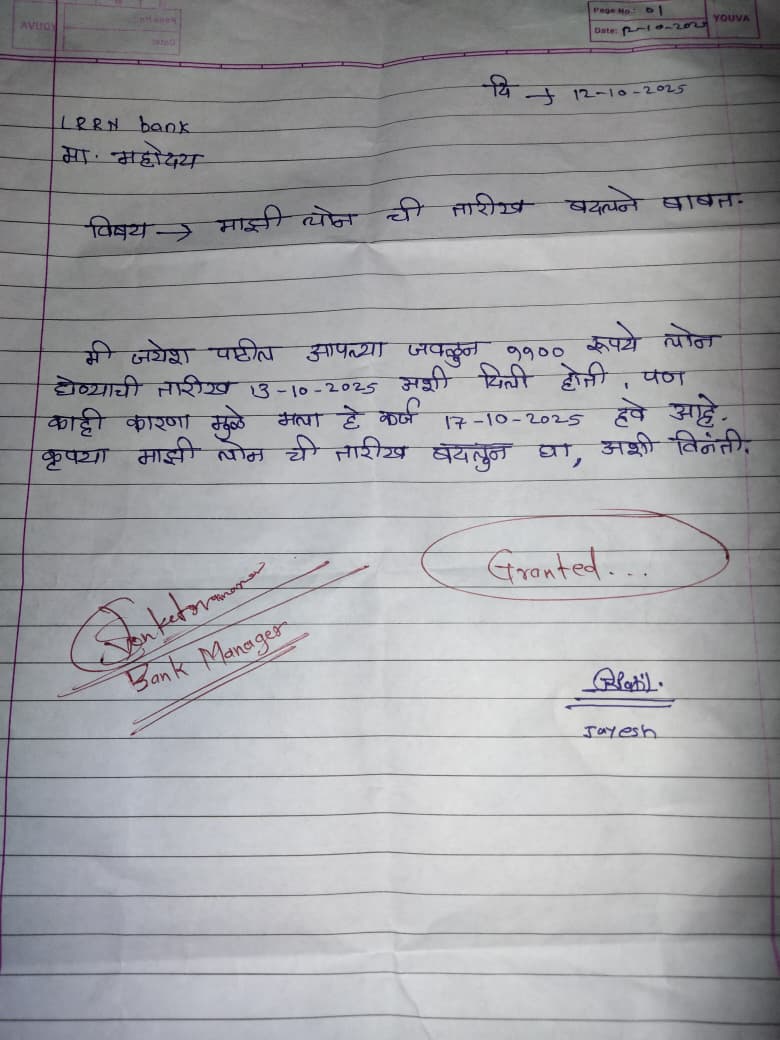 Page No.: 01
YOUVA
Date: 12-10-2025
दि → 12-10-2025
LRRN bank
मा. महोदय
विषय → माझी लोन ची तारीख बदलने बाबत.
मी जयेश पाटील आपल्या जवळुन ११०० रूपये लोन
घेण्याची तारीख 13-10-2025 अशी दिली होती, पण
काही कारणा मुळे मला हे कर्ज 17-10-2025 हवे आहे.
कृपया माझी लोन ची तारीख बदलुन घा, अशी विनंती.
Granted...
Bank Manager
Jayesh